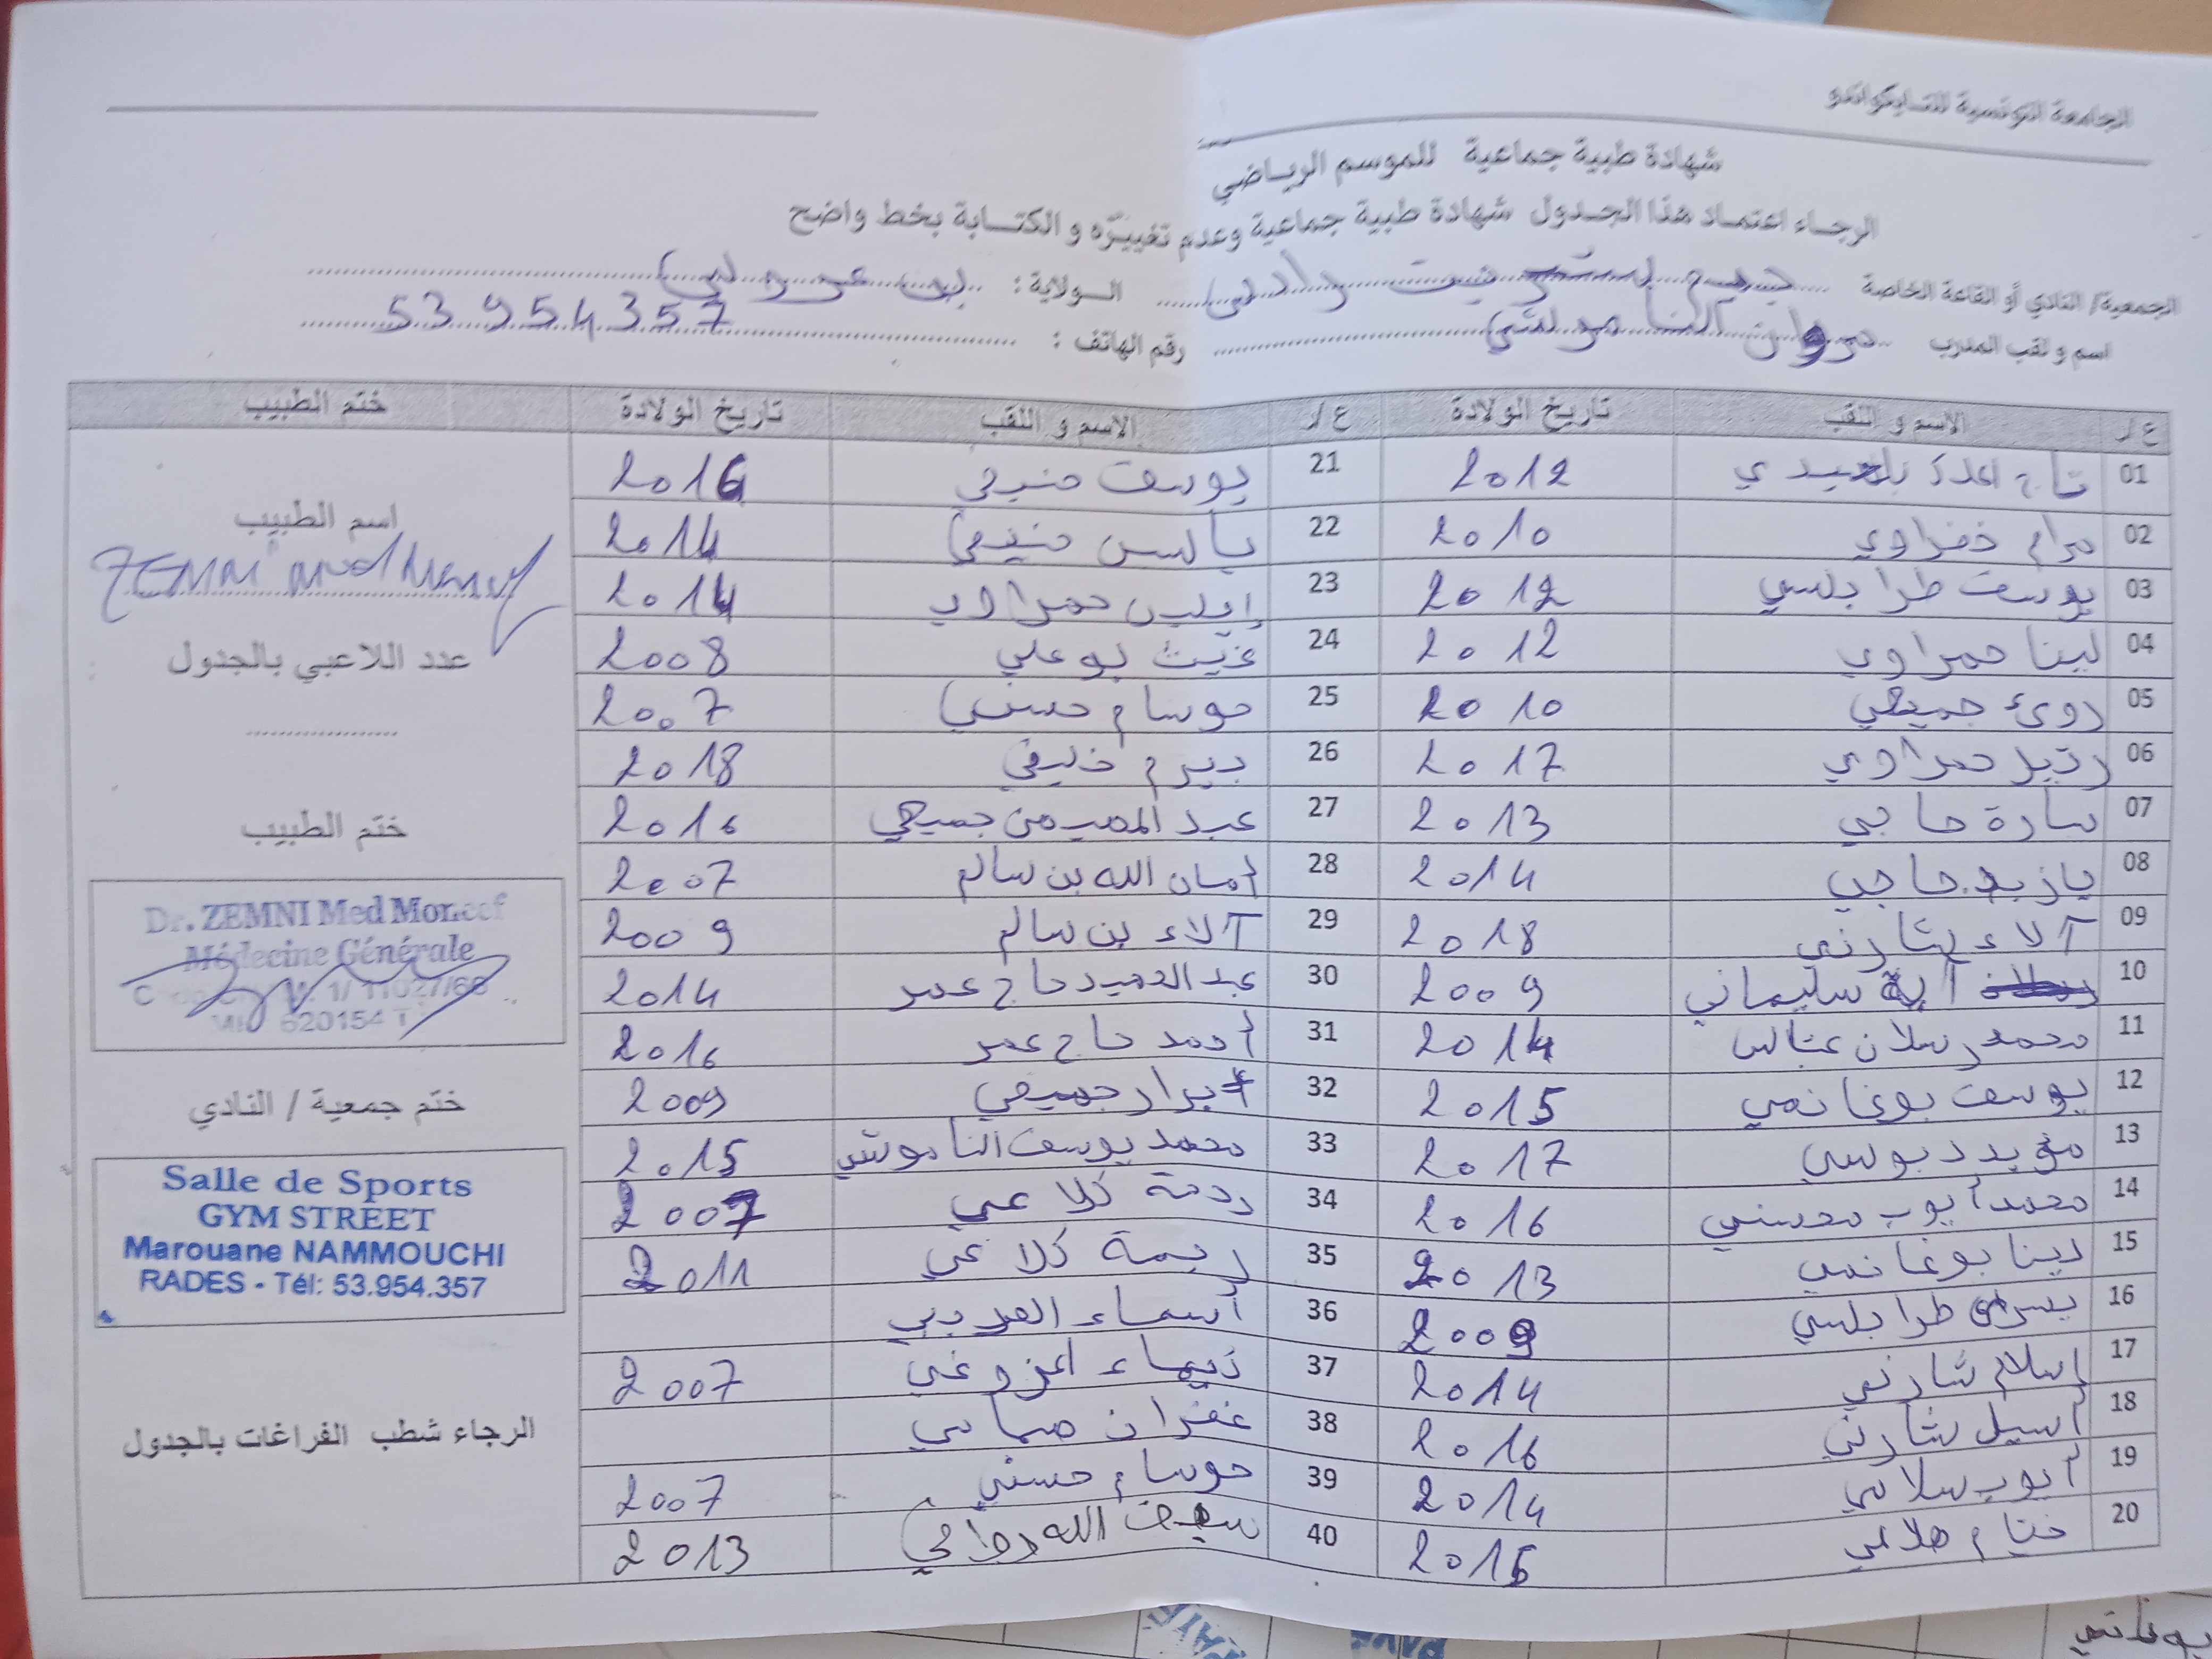 الجامعة التونسية للتايكواندو
شهادة طبية جماعية للموسم الرياضي
الرجاء اعتماد هذا الجدول شهادة طبية جماعية وعدم تغييره و الكتابة بخط واضح
الجمعية/ النادي أو القاعة الخاصة جيم ستريت رادس الولاية : بن عروس
اسم و لقب المدرب مروان الناموشي رقم الهاتف : 53 954 357
ع/ر الاسم و اللقب تاريخ الولادة ع/ر الاسم و اللقب تاريخ الولادة ختم الطبيب
01 تاج بلعيدي 2012
02 مرام خضراوي 2010
03 يوسف طرابلسي 2012
04 لينا حمراوي 2012
05 رؤى جميعي 2010
06 رتيل حمراوي 2017
07 سارة حاجي 2013
08 يازيد حاجي 2014
09 آلاء شارني 2018
10 آية سليماني 2009
11 محمد رسلان عباس 2014
12 يوسف بوغانمي 2015
13 مؤيد دبوسي 2017
14 محمد أيوب محسني 2016
15 دينا بوغانمي 2013
16 يسرى طرابلسي 2009
17 إسلام شارني 2014
18 أسيل شارني 2016
19 أيوب سلامي 2014
20 ختام 2015
21 يوسف منيعي 2016
22 ياسين منيعي 2014
23 إيلين حمراوي 2014
24 غيث بوعلي 2008
25 حوسام حسني 2007
26 بيرم خليفي 2018
27 عبد المهيمن جميعي 2016
28 أمان الله بن سالم 2007
29 آلاء بن سالم 2009
30 عبد الحميد حاج عمر 2014
31 أحمد حاج عمر 2016
32 أبرار جميعي 2009
33 محمد يوسف الناموشي 2015
34 رحمة كلاعي 2007
35 ريمة كلاعي 2011
36 أسماء
37 المزوغي 2007
38 غفران
39 حوسام حسني 2007
40 سيف الله 2013
اسم الطبيب
ZEMNI
عدد اللاعبي بالجدول
ختم الطبيب
Dr. ZEMNI Med Moncef
Médecine Générale
1/ 11027/66
620154 T
ختم جمعية / النادي
Salle de Sports
GYM STREET
Marouane NAMMOUCHI
RADES - Tél: 53.954.357
الرجاء شطب الفراغات بالجدول